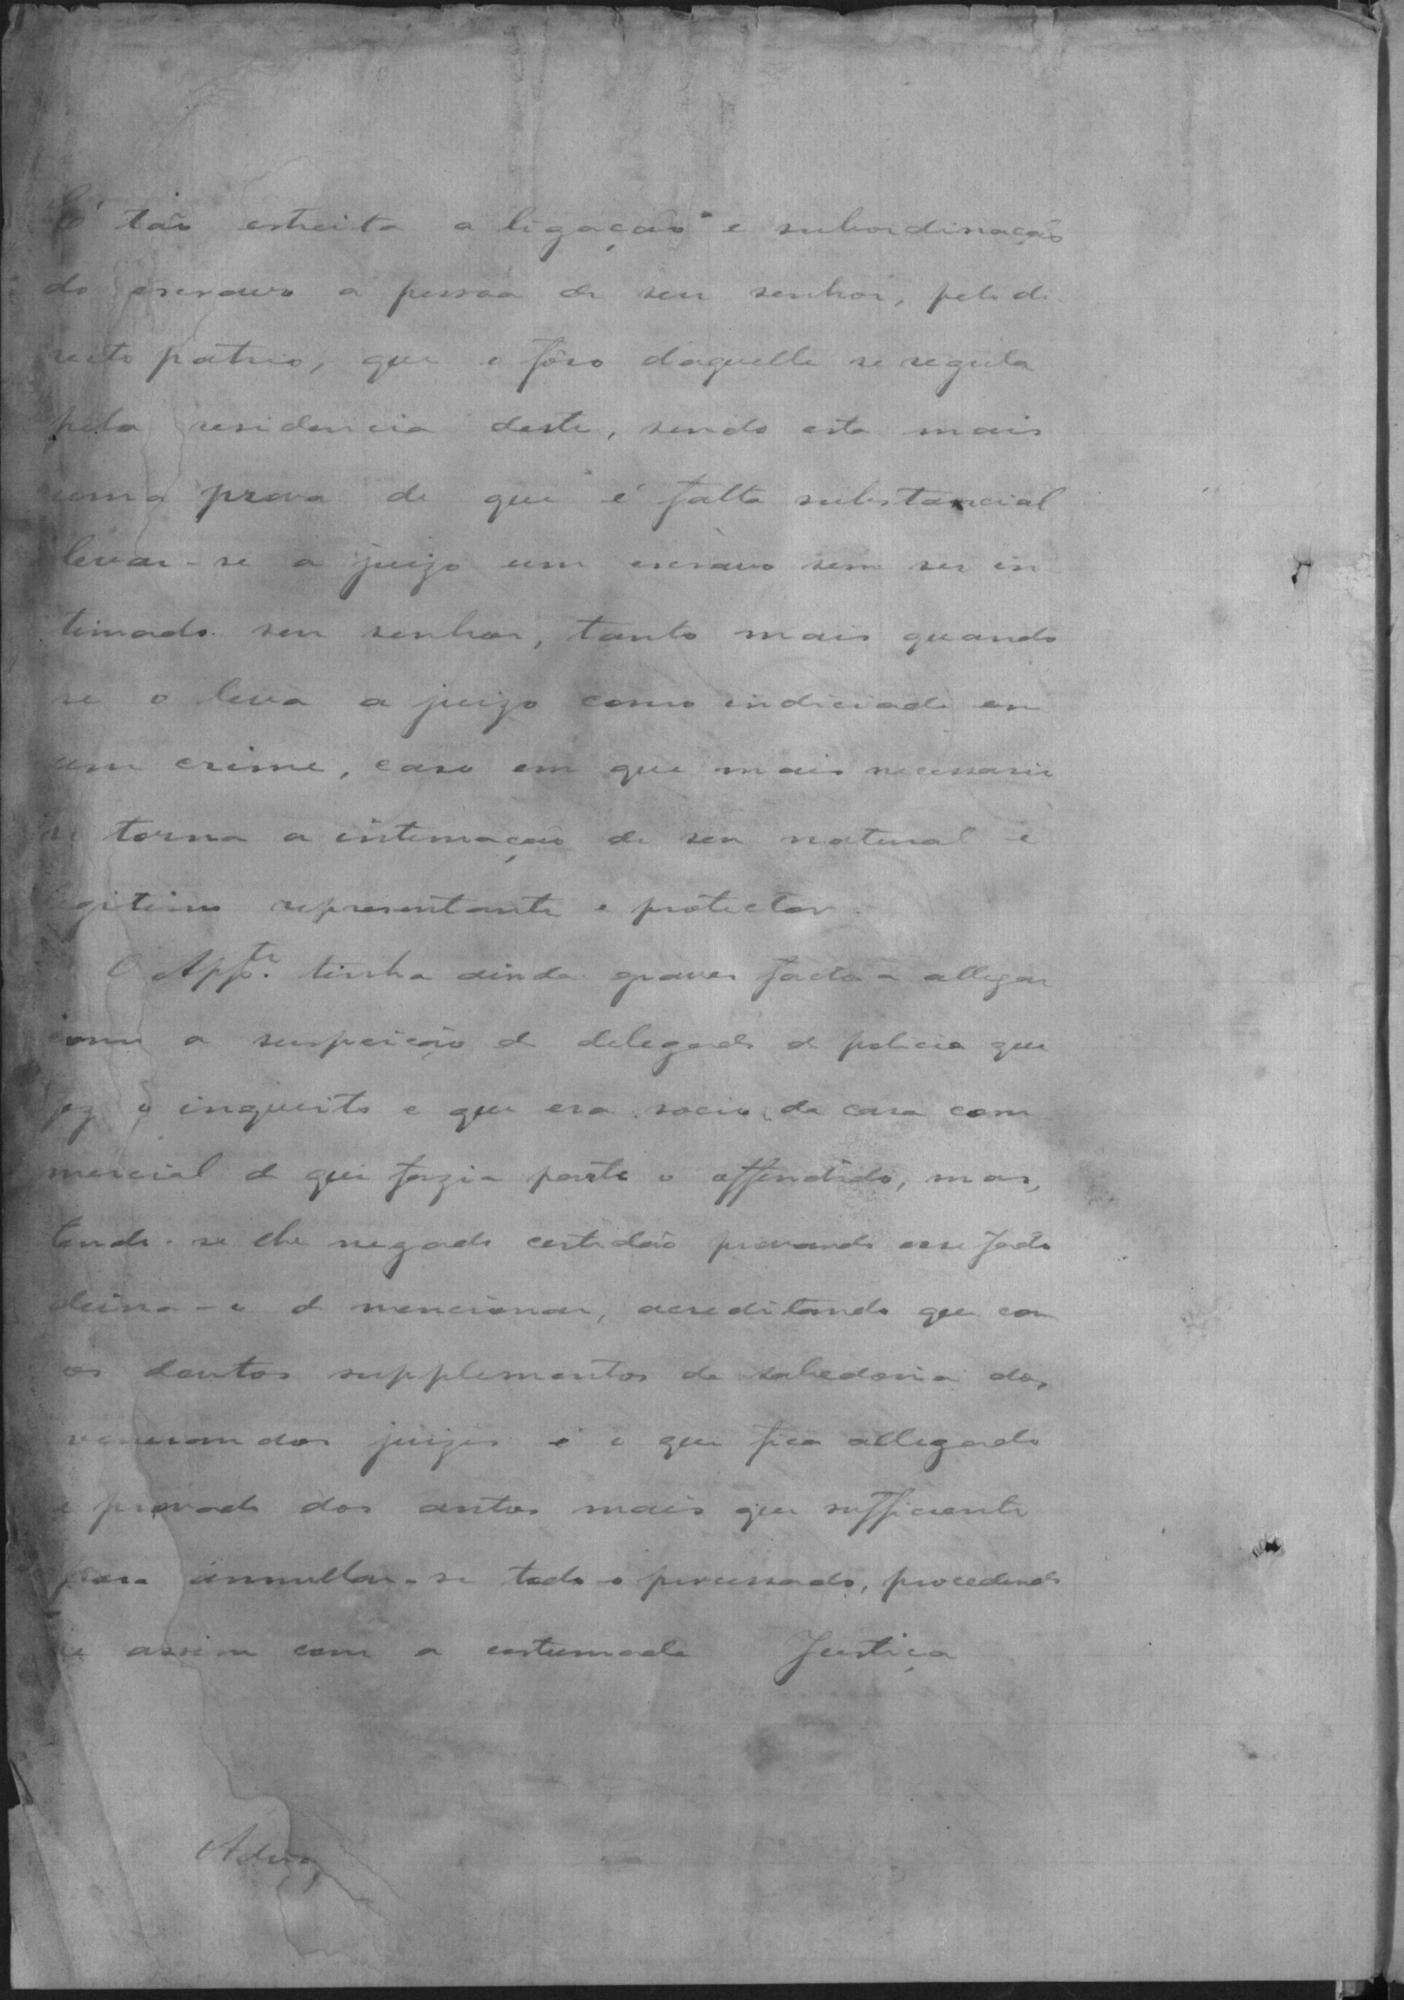 É tão estreita a ligação e subordinação
do escravo a pessoa de seu senhor, pelo di-
reito patrio, que o fôro daquelle se regula
pela residencia deste, sendo esta mais
uma prova de que é falta substancial
levar-se a juizo um escravo sem ser in
timado seu senhor, tanto mais quando
se o leva a juizo como indiciado em
um crime, caso em que mais necessaria
se torna a intimação de seu natural e
legitimo representante e protector.
O Appte. tinha ainda graves factos a allegar
como a suspeição do delegado de policia que
fez o inquerito e que era socio da casa com
mercial de que fazia parte o offendido, mas,
tendo-se lhe negado certidão provando esse facto
deixa-o de mencionar, acreditando que com
os doutos supplementos da sabedoria dos
venerandos juizes é o que fica allegado
e provado dos autos mais que sufficiente
para annullar-se todo o processado, procedendo
se assim com a costumada Justiça